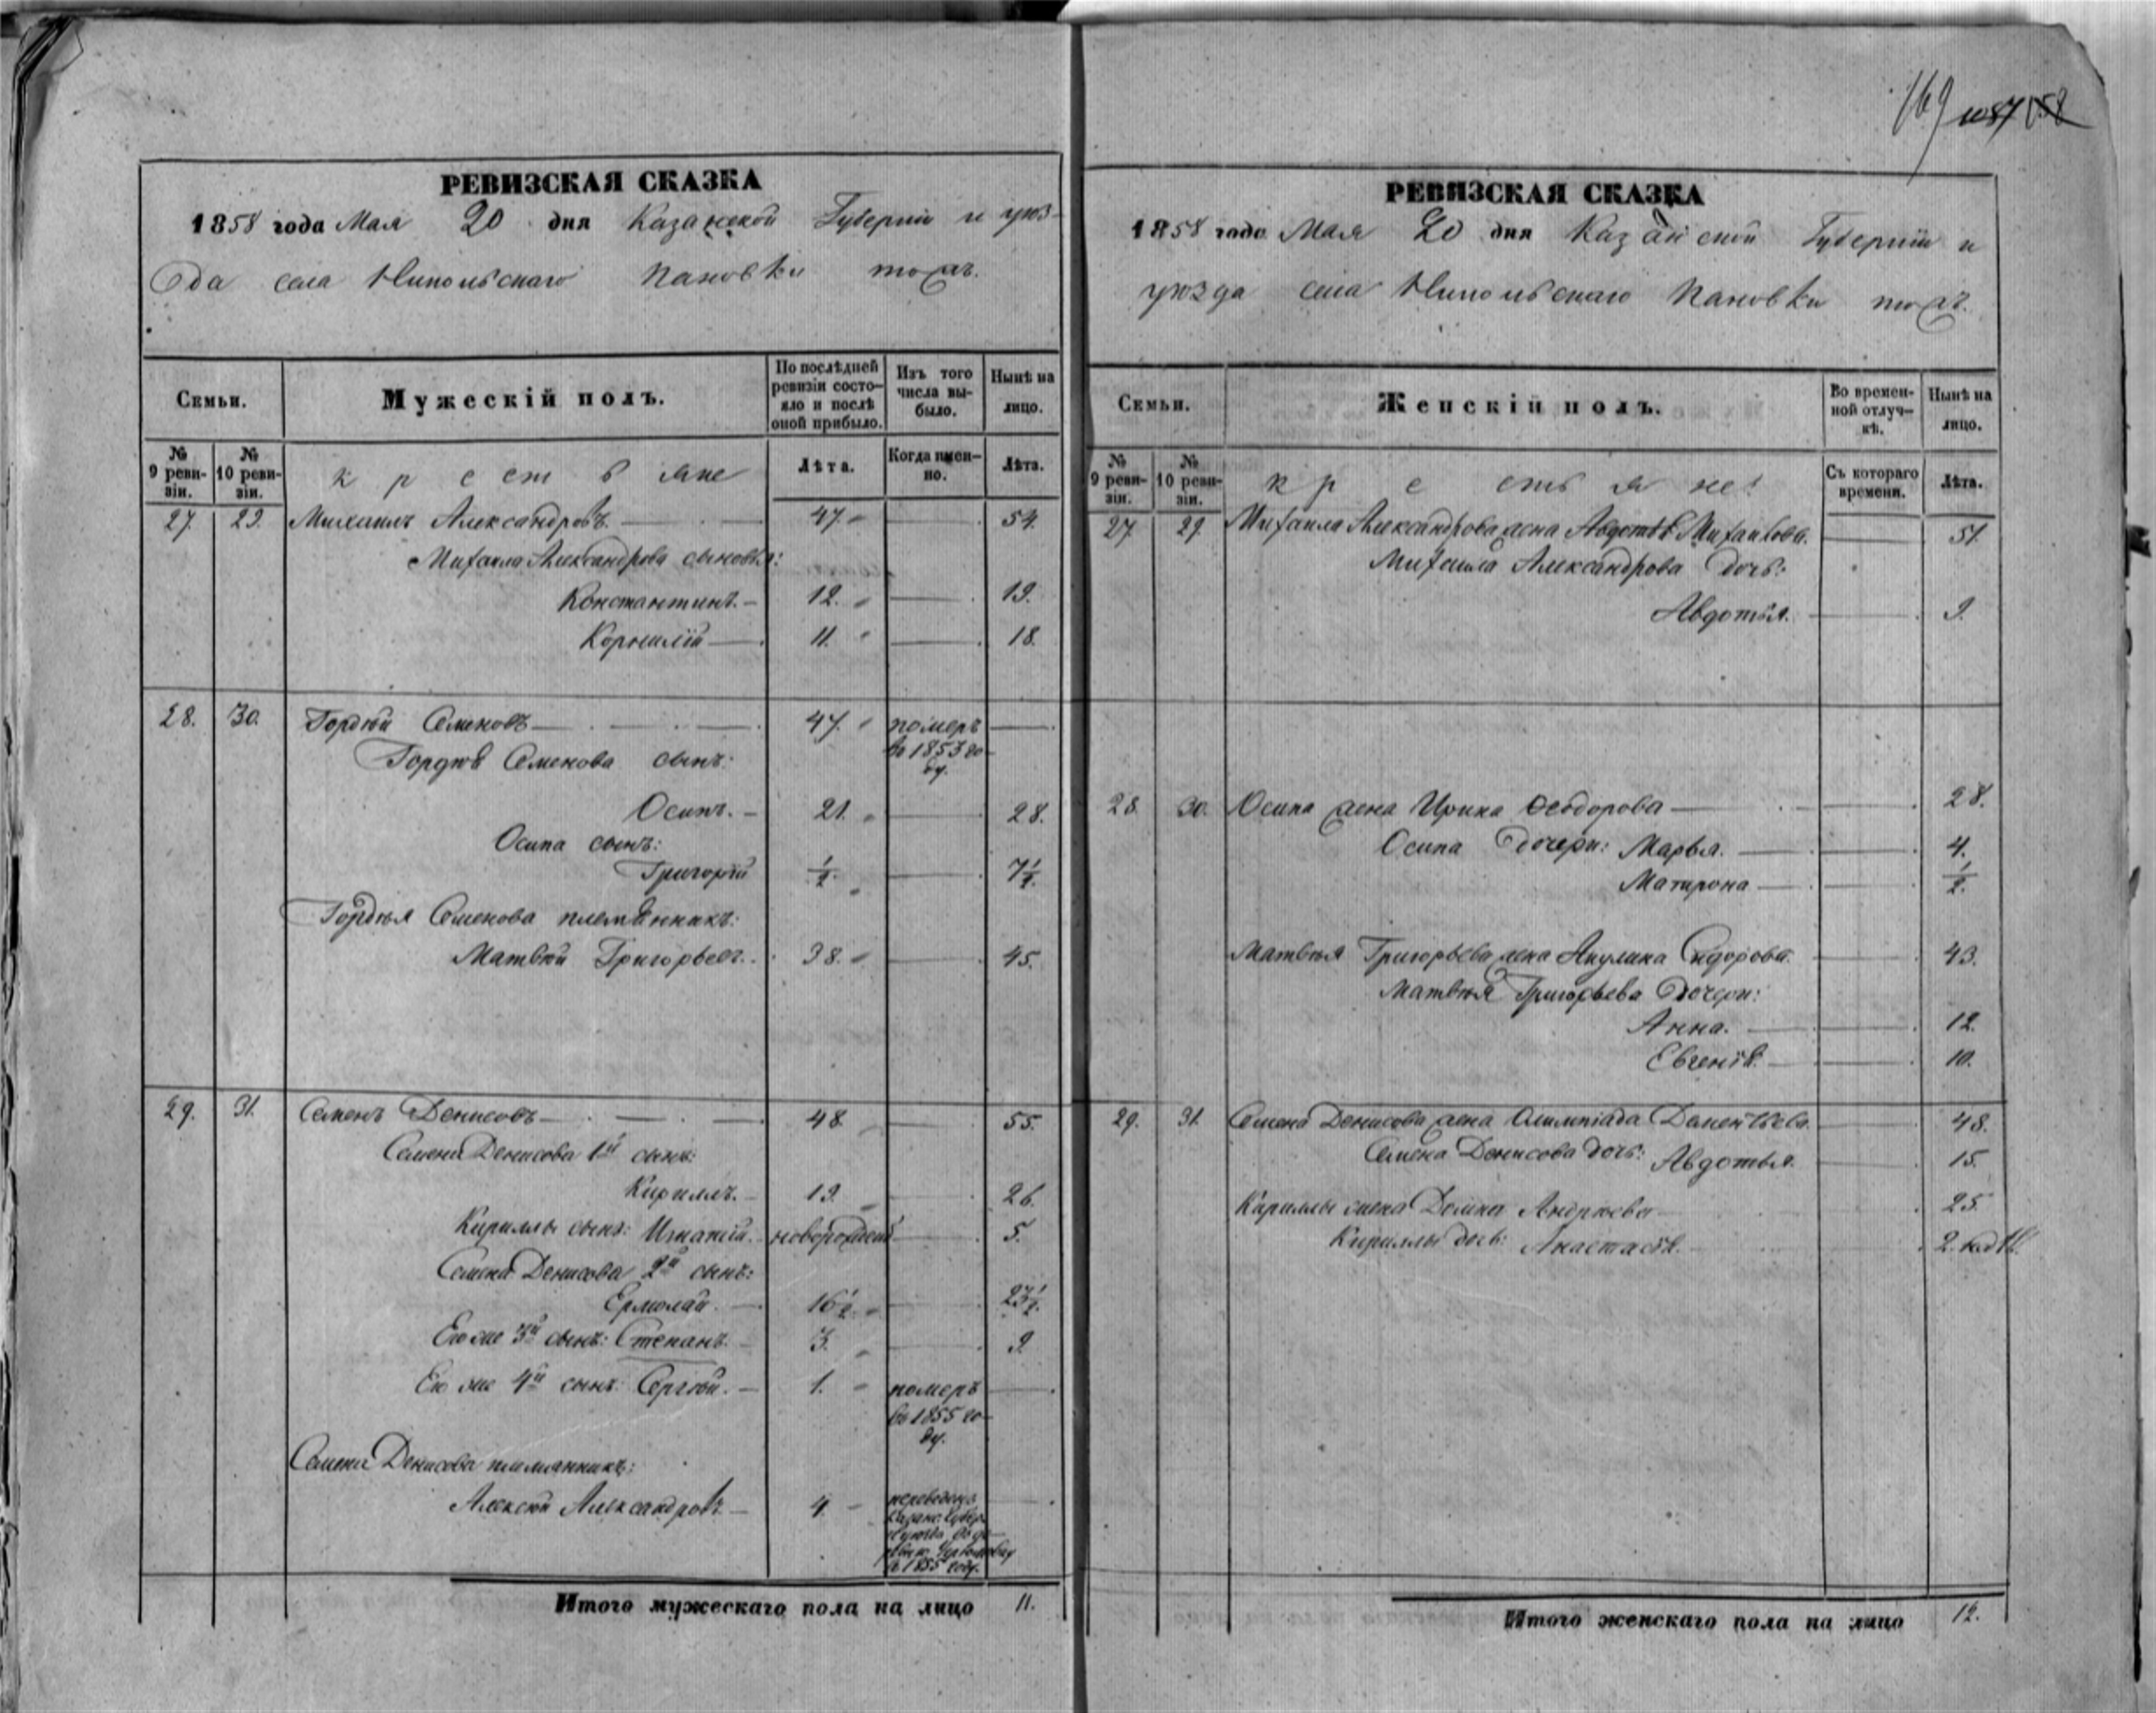 169 1087 158
РЕВИЗСКАЯ СКАЗКА
1858 года Мая 20 дня Казанской Губерніи и уѣз-
да села Никольскаго Пановки тожъ.
Семьи.
Мужескій полъ.
По послѣдней ревизіи состо-яло и послѣ оной прибыло.
Изъ того числа вы-было.
Нынѣ на лицо.
№ 9 реви-зіи.
№ 10 реви-зіи.
крестьяне
Лѣта.
Когда имен-но.
Лѣта.
27. 29. Михаилъ Александровъ. 47. 54.
Михаила Александрова сыновья:
Константинъ. 12. 19.
Корнилій 11. 18.
28. 30. Гордѣй Семеновъ 47. померъ
въ 1853 го-
ду.
Гордѣя Семенова сынъ:
Осипъ. 21. 28.
Осипа сынъ:
Григорій 1/2. 7 1/2.
Гордѣя Семенова племянникъ:
Матвѣй Григорьевъ. 38. 45.
29. 31. Семенъ Денисовъ 48. 55.
Семена Денисова 1й сынъ:
Кириллъ. 19. 26.
Кириллы сынъ: Игнатій. новорожден 5.
Семена Денисова 2й сынъ:
Ермолай. 16 1/2. 23 1/2.
Его же 3й сынъ: Степанъ. 3. 9.
Его же 4й сынъ: Сергѣй. 1. померъ
въ 1855 го-
ду.
Семена Денисова племянникъ:
Алексѣй Александровъ 4. переведенъ
Казанс. Губер.
въ 1855 году.
Итого мужескаго пола на лицо 11.
РЕВИЗСКАЯ СКАЗКА
1858 года Мая 20 дня Казанской Губерніи и
уѣзда села Никольскаго Пановки тожъ.
Семьи.
Женскій полъ.
Во времен-ной отлуч-кѣ.
Нынѣ на лицо.
№ 9 реви-зіи.
№ 10 реви-зіи.
крестьяне:
Съ котораго времени.
Лѣта.
27. 29. Михаила Александрова жена Авдотья Михайлова. 51.
Михаила Александрова дочь:
Авдотья. 9.
28. 30. Осипа жена Ирина Ѳеодорова 28.
Осипа дочери: Марья. 4.
Матрона 1/2.
Матвѣя Григорьева жена Акулина Сидорова. 43.
Матвѣя Григорьева дочери:
Анна. 12.
Евгенія. 10.
29. 31. Семена Денисова жена Олимпіада 48.
Семена Денисова дочь: Авдотья. 15.
Кириллы жена Домна Андрѣева 25.
Кириллы дочь: Анастасія. 2. нед.
Итого женскаго пола на лицо 12.